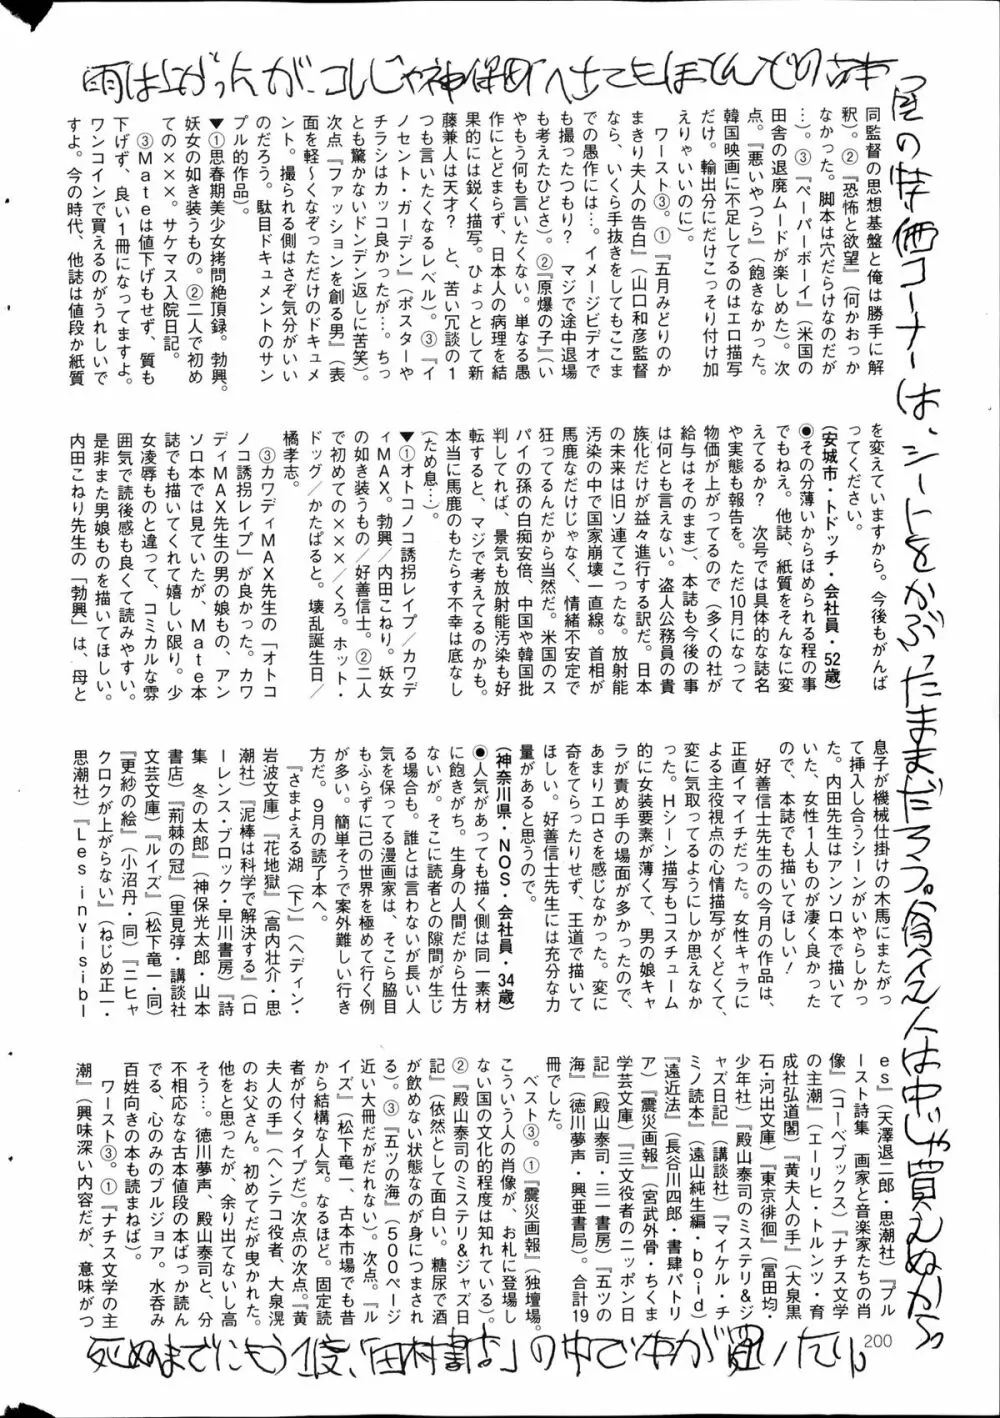 雨は上がったが、コレじゃ神保町へ出てもほとんどの古本
屋の特価コーナーは、シートをかぶったままだろう。貧乏人は中じゃ買えぬから。
同監督の思想基盤と俺は勝手に解
釈）。②『恐怖と欲望』（何かおっか
なかった。脚本は穴だらけなのだが
…）。③『ペーパーボーイ』（米国の
田舎の退廃ムードが楽しめた）。次
点。『悪いやつら』（飽きなかった。
韓国映画に不足してるのはエロ描写
だけ。輸出分にだけこっそり付け加
えりゃいいのに）。
　ワースト③。①『五月みどりのか
まきり夫人の告白』（山口和彦監督
なら、いくら手抜きをしてもここま
での愚作には…。イメージビデオで
も撮ったつもり？　マジで途中退場
も考えたひどさ）。②『原爆の子』（い
やもう何も言いたくない。単なる愚
作にとどまらず、日本人の病理を結
果的には鋭く描写。ひょっとして新
藤兼人は天才？　と、苦い冗談の１
つも言いたくなるレベル）。③『イ
ノセント・ガーデン』（ポスターや
チラシはカッコ良かったが…。ちっ
とも驚かないドンデン返しに苦笑）。
次点『ファッションを創る男』（表
面を軽～くなぞっただけのドキュメ
ント。撮られる側はさぞ気分がいい
のだろう。駄目ドキュメントのサン
プル的作品）。
▼①思春期美少女拷問絶頂録。勃興。
妖女の如き装うもの。②二人で初め
ての×××。サケマス入院日記。
　③Ｍａｔｅは値下げもせず、質も
下げず、良い１冊になってますよ。
ワンコインで買えるのがうれしいで
すよ。今の時代、他誌は値段か紙質
を変えていますから。今後もがんば
ってください。
（安城市・トドッチ・会社員・52歳）
◉その分薄いからほめられる程の事
でもねえ。他誌、紙質をそんなに変
えてるか？　次号では具体的な誌名
や実態も報告を。ただ10月になって
物価が上がってるので（多くの社が
給与はそのまま）、本誌も今後の事
は何とも言えない。盗人公務員の貴
族化だけが益々進行する訳だ。日本
の未来は旧ソ連てこったな。放射能
汚染の中で国家崩壊一直線。首相が
馬鹿なだけじゃなく、情緒不安定で
狂ってるんだから当然だ。米国のス
パイの孫の白痴安倍、中国や韓国批
判してれば、景気も放射能汚染も好
転すると、マジで考えてるのかも。
本当に馬鹿のもたらす不幸は底なし
（ため息…）。
▼①オトコノコ誘拐レイプ／カワデ
ィＭＡＸ。勃興／内田こねり。妖女
の如き装うもの／好善信士。②二人
で初めての×××／くろ。ホット・
ドッグ／かたばると。壊乱誕生日／
橘孝志。
　③カワディＭＡＸ先生の「オトコ
ノコ誘拐レイプ」が良かった。カワ
ディＭＡＸ先生の男の娘もの、アン
ソロ本では見ていたが、Ｍａｔｅ本
誌でも描いてくれて嬉しい限り。少
女凌辱ものと違って、コミカルな雰
囲気で読後感も良くて読みやすい。
是非また男娘ものを描いてほしい。
内田こねり先生の「勃興」は、母と
息子が機械仕掛けの木馬にまたがっ
て挿入し合うシーンがいやらしかっ
た。内田先生はアンソロ本で描いて
いた、女性１人ものが凄く良かった
ので、本誌でも描いてほしい！
　好善信士先生のの今月の作品は、
正直イマイチだった。女性キャラに
よる主役視点の心情描写がくどくて、
変に気取ってるようにしか思えなか
った。Ｈシーン描写もコスチューム
的に女装要素が薄くて、男の娘キャ
ラが責め手の場面が多かったので、
あまりエロさを感じなかった。変に
奇をてらったりせず、王道で描いて
ほしい。好善信士先生には充分な力
量があると思うので。
（神奈川県・ＮＯＳ・会社員・34歳）
◉人気があっても描く側は同一素材
に飽きがち。生身の人間だから仕方
ないが、そこに読者との隙間が生じ
る場合も。誰とは言わないが長い人
気を保ってる漫画家は、そこら脇目
もふらずに己の世界を極めて行く例
が多い。簡単そうで案外難しい行き
方だ。９月の読了本へ。
　『さまよえる湖（下）』（ヘディン・
岩波文庫）『花地獄』（高内壮介・思
潮社）『泥棒は科学で解決する』（ロ
ーレンス・ブロック・早川書房）『詩
集　冬の太郎』（神保光太郎・山本
書店）『荊棘の冠』（里見弴・講談社
文芸文庫）『ルイズ』（松下竜一・同）
『更紗の絵』（小沼丹・同）『二ヒャ
クロクが上がらない』（ねじめ正一・
思潮社）『Ｌｅｓ ｉｎｖｉｓｉｂｌ
ｅｓ』（天澤退二郎・思潮社）『プル
ースト詩集　画家と音楽家たちの肖
像』（コーベブックス）『ナチス文学
の主潮』（エーリヒ・トルンツ・育
成社弘道閣）『黄夫人の手』（大泉黒
石・河出文庫）『東京徘徊』（冨田均・
少年社）『殿山泰司のミステリ＆ジ
ャズ日記』（講談社）『マイケル・チ
ミノ読本』（遠山純生編・ｂｏｉｄ）
『遠近法』（長谷川四郎・書肆パトリ
ア）『震災画報』（宮武外骨・ちくま
学芸文庫）『三文役者のニッポン日
記』（殿山泰司・三一書房）『五ツの
海』（徳川夢声・興亜書局）。合計19
冊でした。
　ベスト③。①『震災画報』（独壇場。
こういう人の肖像が、お札に登場し
ない国の文化的程度は知れている）。
②『殿山泰司のミステリ＆ジャズ日
記』（依然として面白い。糖尿で酒
が飲めない状態なのが身につまされ
る）。③『五ツの海』（５００ページ
近い大冊だがだれない）。次点。『ル
イズ』（松下竜一、古本市場でも昔
から結構な人気。なるほど。固定読
者が付くタイプだ）次点の次点。『黄
夫人の手』（ヘンテコ役者、大泉滉
のお父さん。初めてだが曳かれた。
他をと思ったが、余り出てないし高
そう…。徳川夢声、殿山泰司と、分
不相応なな古本値段の本ばっか読ん
でる、心のみのブルジョア。水呑み
百姓向きの本も読まねば）。
　ワースト③。①『ナチス文学の主
潮』（興味深い内容だが、意味がつ
200
死ぬまでにもう1度、「田村書店」の中で本が買いたい。